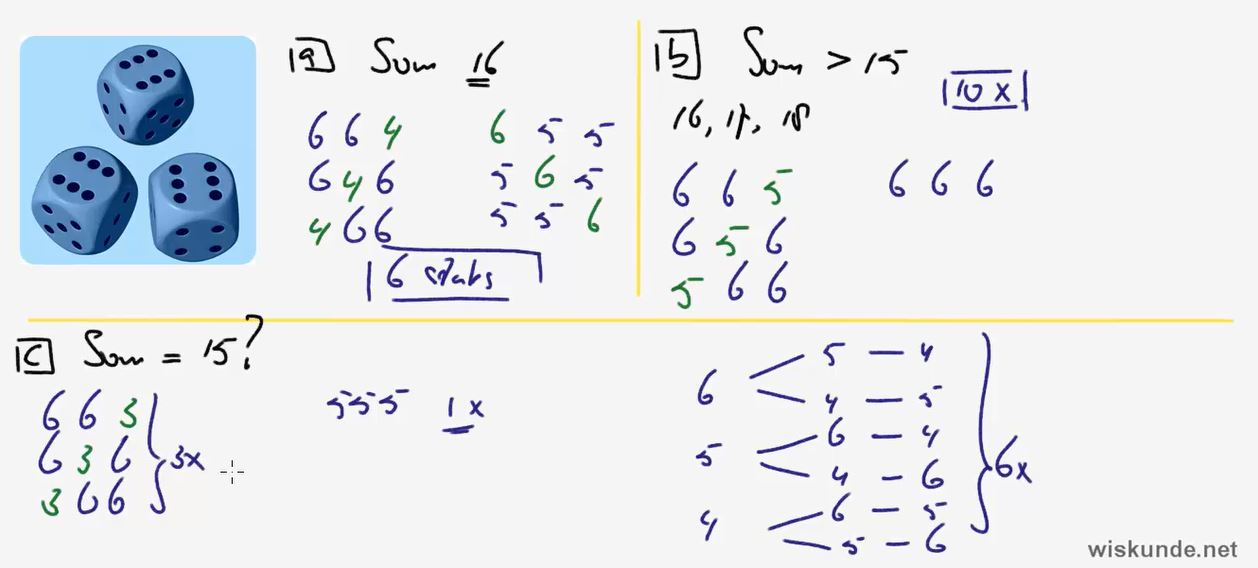 a Som 16
6 6 4
6 4 6
4 6 6
6 5 5
5 6 5
5 5 6
6
b Som > 15
10 x
16, 17, 18
6 6 5
6 5 6
5 6 6
6 6 6
c Som = 15?
6 6 3
6 3 6
3 6 6
3x
5 5 5 1 x
6
5 — 4
4 — 5
5
6 — 4
4 — 6
4
6 — 5
5 — 6
6x
wiskunde.net